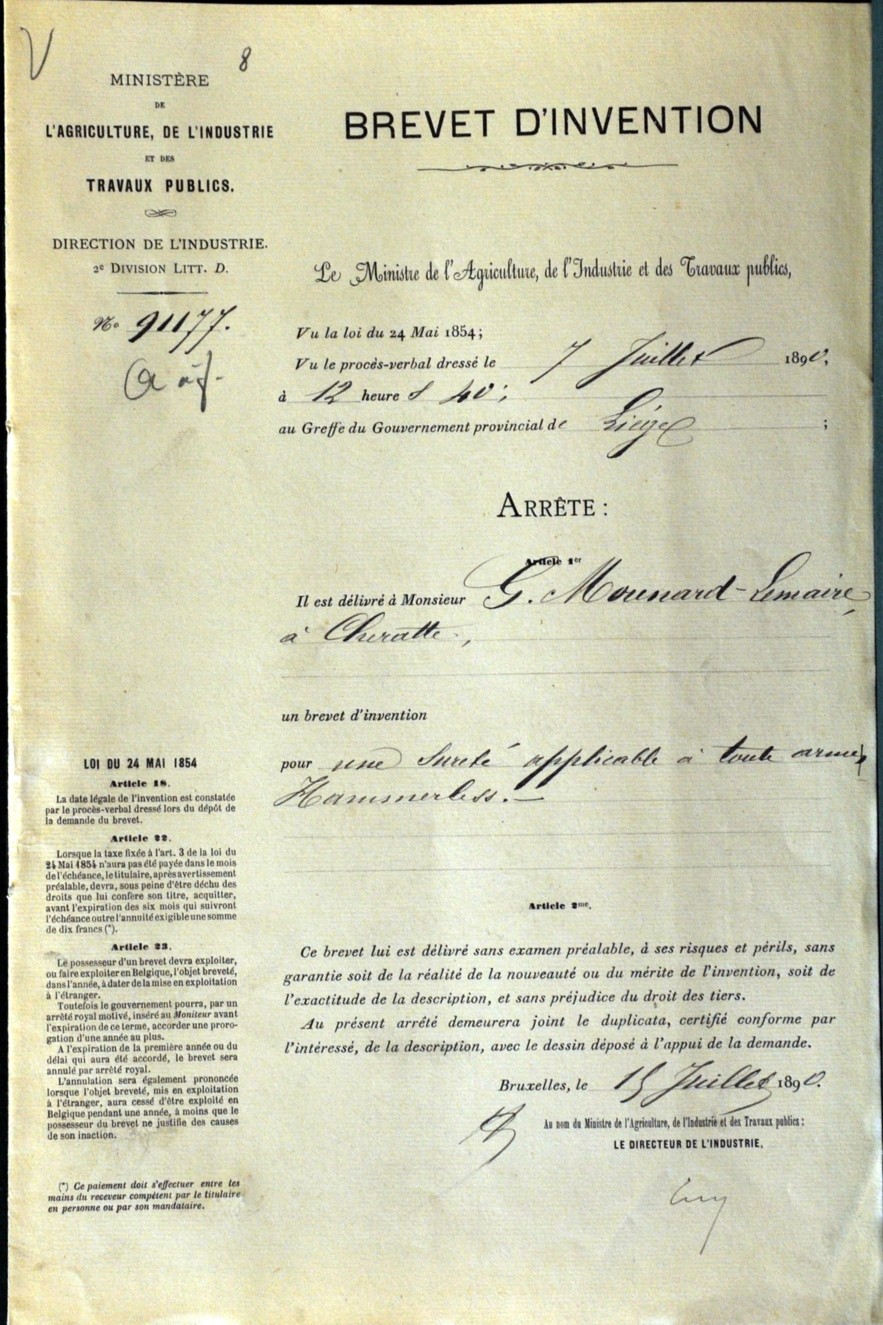 V
8
MINISTÈRE
DE
L'AGRICULTURE, DE L'INDUSTRIE
ET DES
TRAVAUX PUBLICS.
DIRECTION DE L'INDUSTRIE.
2e DIVISION LITT. D.
No 91177.
BREVET D'INVENTION
Le Ministre de l'Agriculture, de l'Industrie et des Travaux publics,
Vu la loi du 24 Mai 1854;
Vu le procès-verbal dressé le 7 Juillet 1890,
à 12 heures 40';
au Greffe du Gouvernement provincial de Liége ;
ARRÊTE :
Article 1er
Il est délivré à Monsieur G. Mounard-Lemaire,
à Cheratte,
un brevet d'invention
pour une sureté applicable à toute arme
Hammerless.—
Article 2me.
Ce brevet lui est délivré sans examen préalable, à ses risques et périls, sans
garantie soit de la réalité de la nouveauté ou du mérite de l'invention, soit de
l'exactitude de la description, et sans préjudice du droit des tiers.
Au présent arrêté demeurera joint le duplicata, certifié conforme par
l'intéressé, de la description, avec le dessin déposé à l'appui de la demande.
Bruxelles, le 15 Juillet 1890.
Au nom du Ministre de l'Agriculture, de l'Industrie et des Travaux publics :
LE DIRECTEUR DE L'INDUSTRIE,
LOI DU 24 MAI 1854
Article 18.
La date légale de l'invention est constatée
par le procès-verbal dressé lors du dépôt de
la demande du brevet.
Article 22.
Lorsque la taxe fixée à l'art. 3 de la loi du
24 Mai 1854 n'aura pas été payée dans le mois
de l'échéance, le titulaire, après avertissement
préalable, devra, sous peine d'être déchu des
droits que lui confère son titre, acquitter,
avant l'expiration des six mois qui suivront
l'échéance outre l'annuité exigible une somme
de dix francs (*).
Article 23.
Le possesseur d'un brevet devra exploiter,
ou faire exploiter en Belgique, l'objet breveté,
dans l'année, à dater de la mise en exploitation
à l'étranger.
Toutefois le gouvernement pourra, par un
arrêté royal motivé, inséré au Moniteur avant
l'expiration de ce terme, accorder une proro-
gation d'une année au plus.
A l'expiration de la première année ou du
délai qui aura été accordé, le brevet sera
annulé par arrêté royal.
L'annulation sera également prononcée
lorsque l'objet breveté, mis en exploitation
à l'étranger, aura cessé d'être exploité en
Belgique pendant une année, à moins que le
possesseur du brevet ne justifie des causes
de son inaction.
(*) Ce paiement doit s'effectuer entre les
mains du receveur compétent par le titulaire
en personne ou par son mandataire.